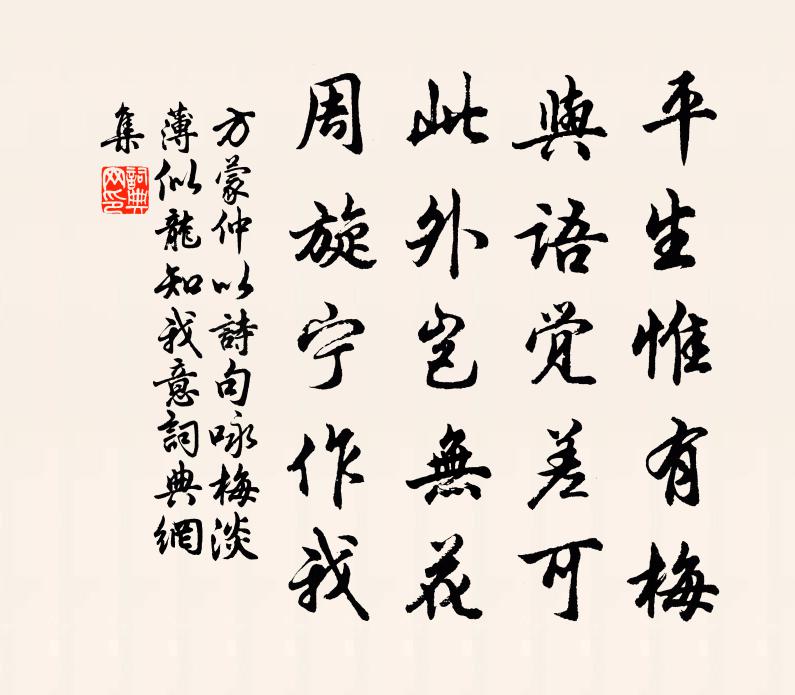 平生惟有梅
與語覺差可
此外岂無花
周旋宁作我
方蒙仲以詩句咏梅淡
薄似龍知我意詞典網
集
詞典
网印